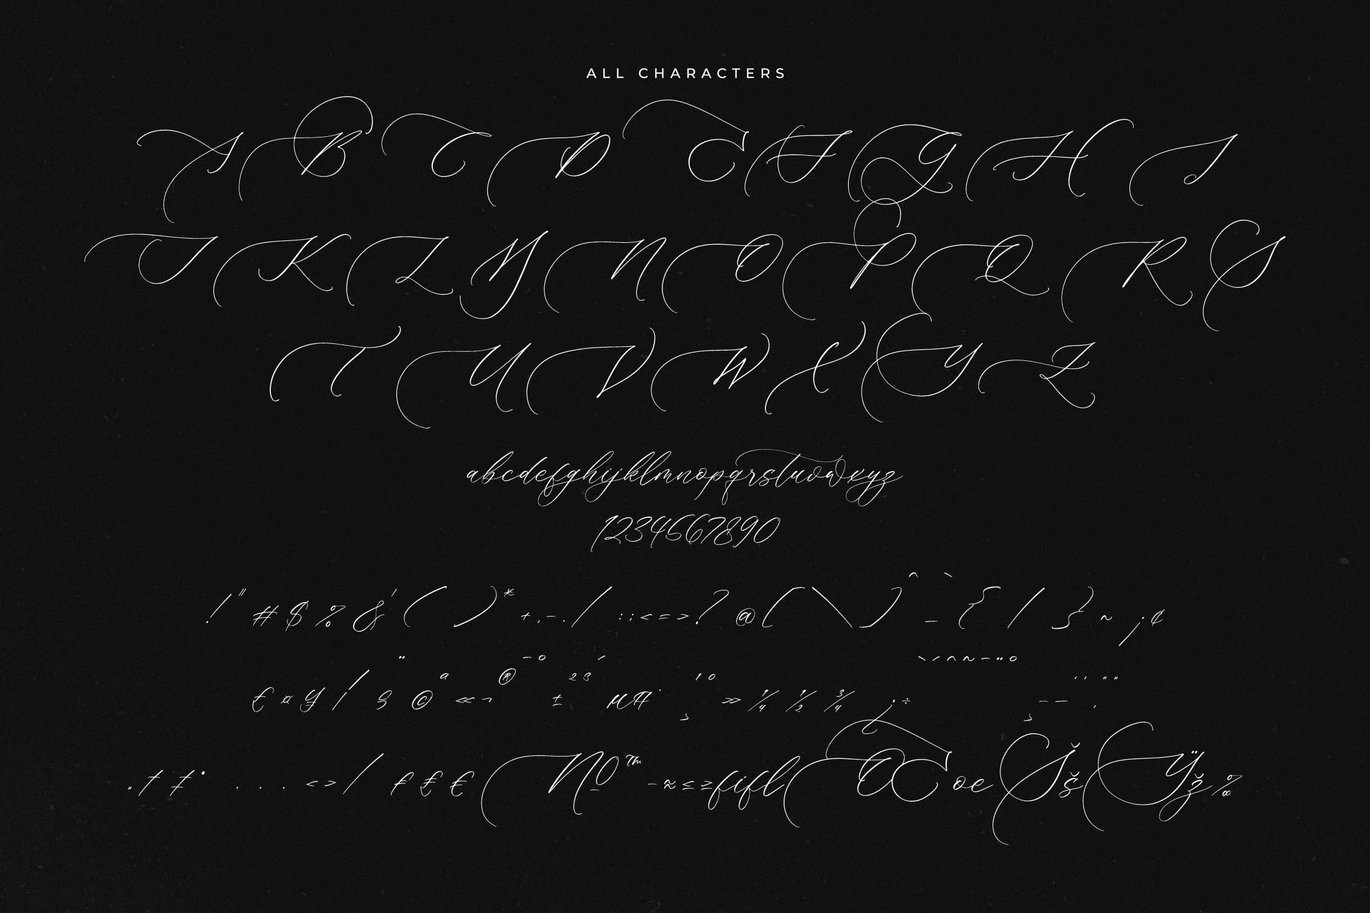 ALL CHARACTERS
A B C D E F G H I
J K L M N O P Q R S
T U V W X Y Z
abcdefghijklmnopqrstuvwxyz
1234567890
! " # $ % & ' ( ) * + , - . / : ; < = > ? @ [ \ ] ^ _ ` { | } ~ ¡ ¢
£ ¤ ¥ ¦ § ¨ © ª « ¬ ® ¯ ° ± ² ³ ´ µ ¶ · ¸ ¹ º » ¼ ½ ¾ ¿ ÷
† ‡ • . . . ‹ › ⁄ ƒ € № ™ − ≈ ≤ ≥ fi fl Œ œ Š š Ÿ ž ‰